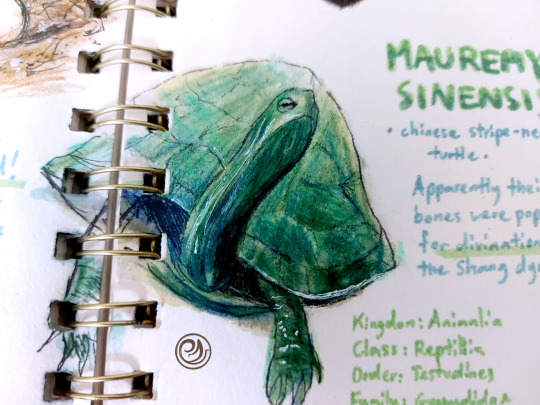 d!
MAUREMY
SINENSIS
• chinese stripe-ne
turtle •
Apparently thei
bones were pop
for divination
the Shang dy
Kingdom: Animalia
Class: Reptilia
Order: Testudines
Family: